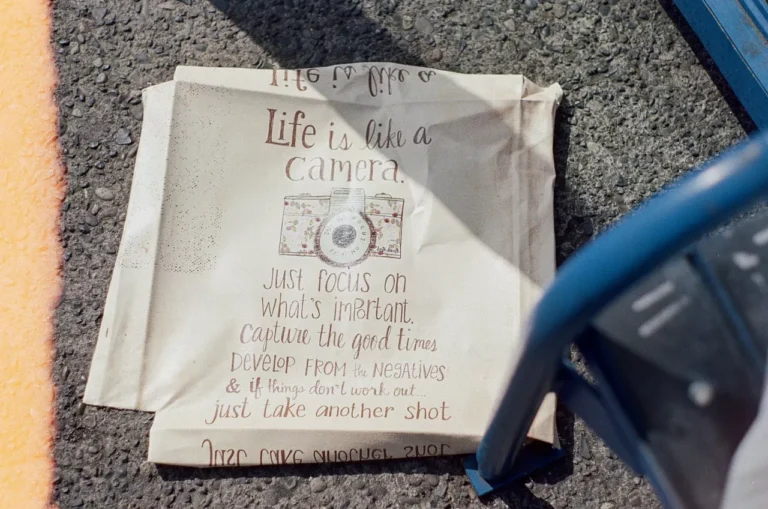 Life is like a
Life is like a
camera.
just focus on
what's important.
Capture the good times
DEVELOP FROM the NEGATIVES
& if things don't work out...
just take another shot
Just take another shot